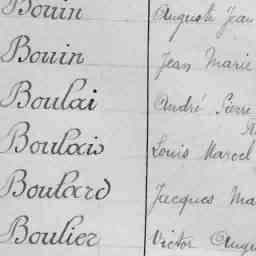 Bouin Auguste Jean
Bouin Jean Marie
Boulai André Pierre
Boulais Louis Marcel
Boulard Jacques Ma
Boulier Victor Augu